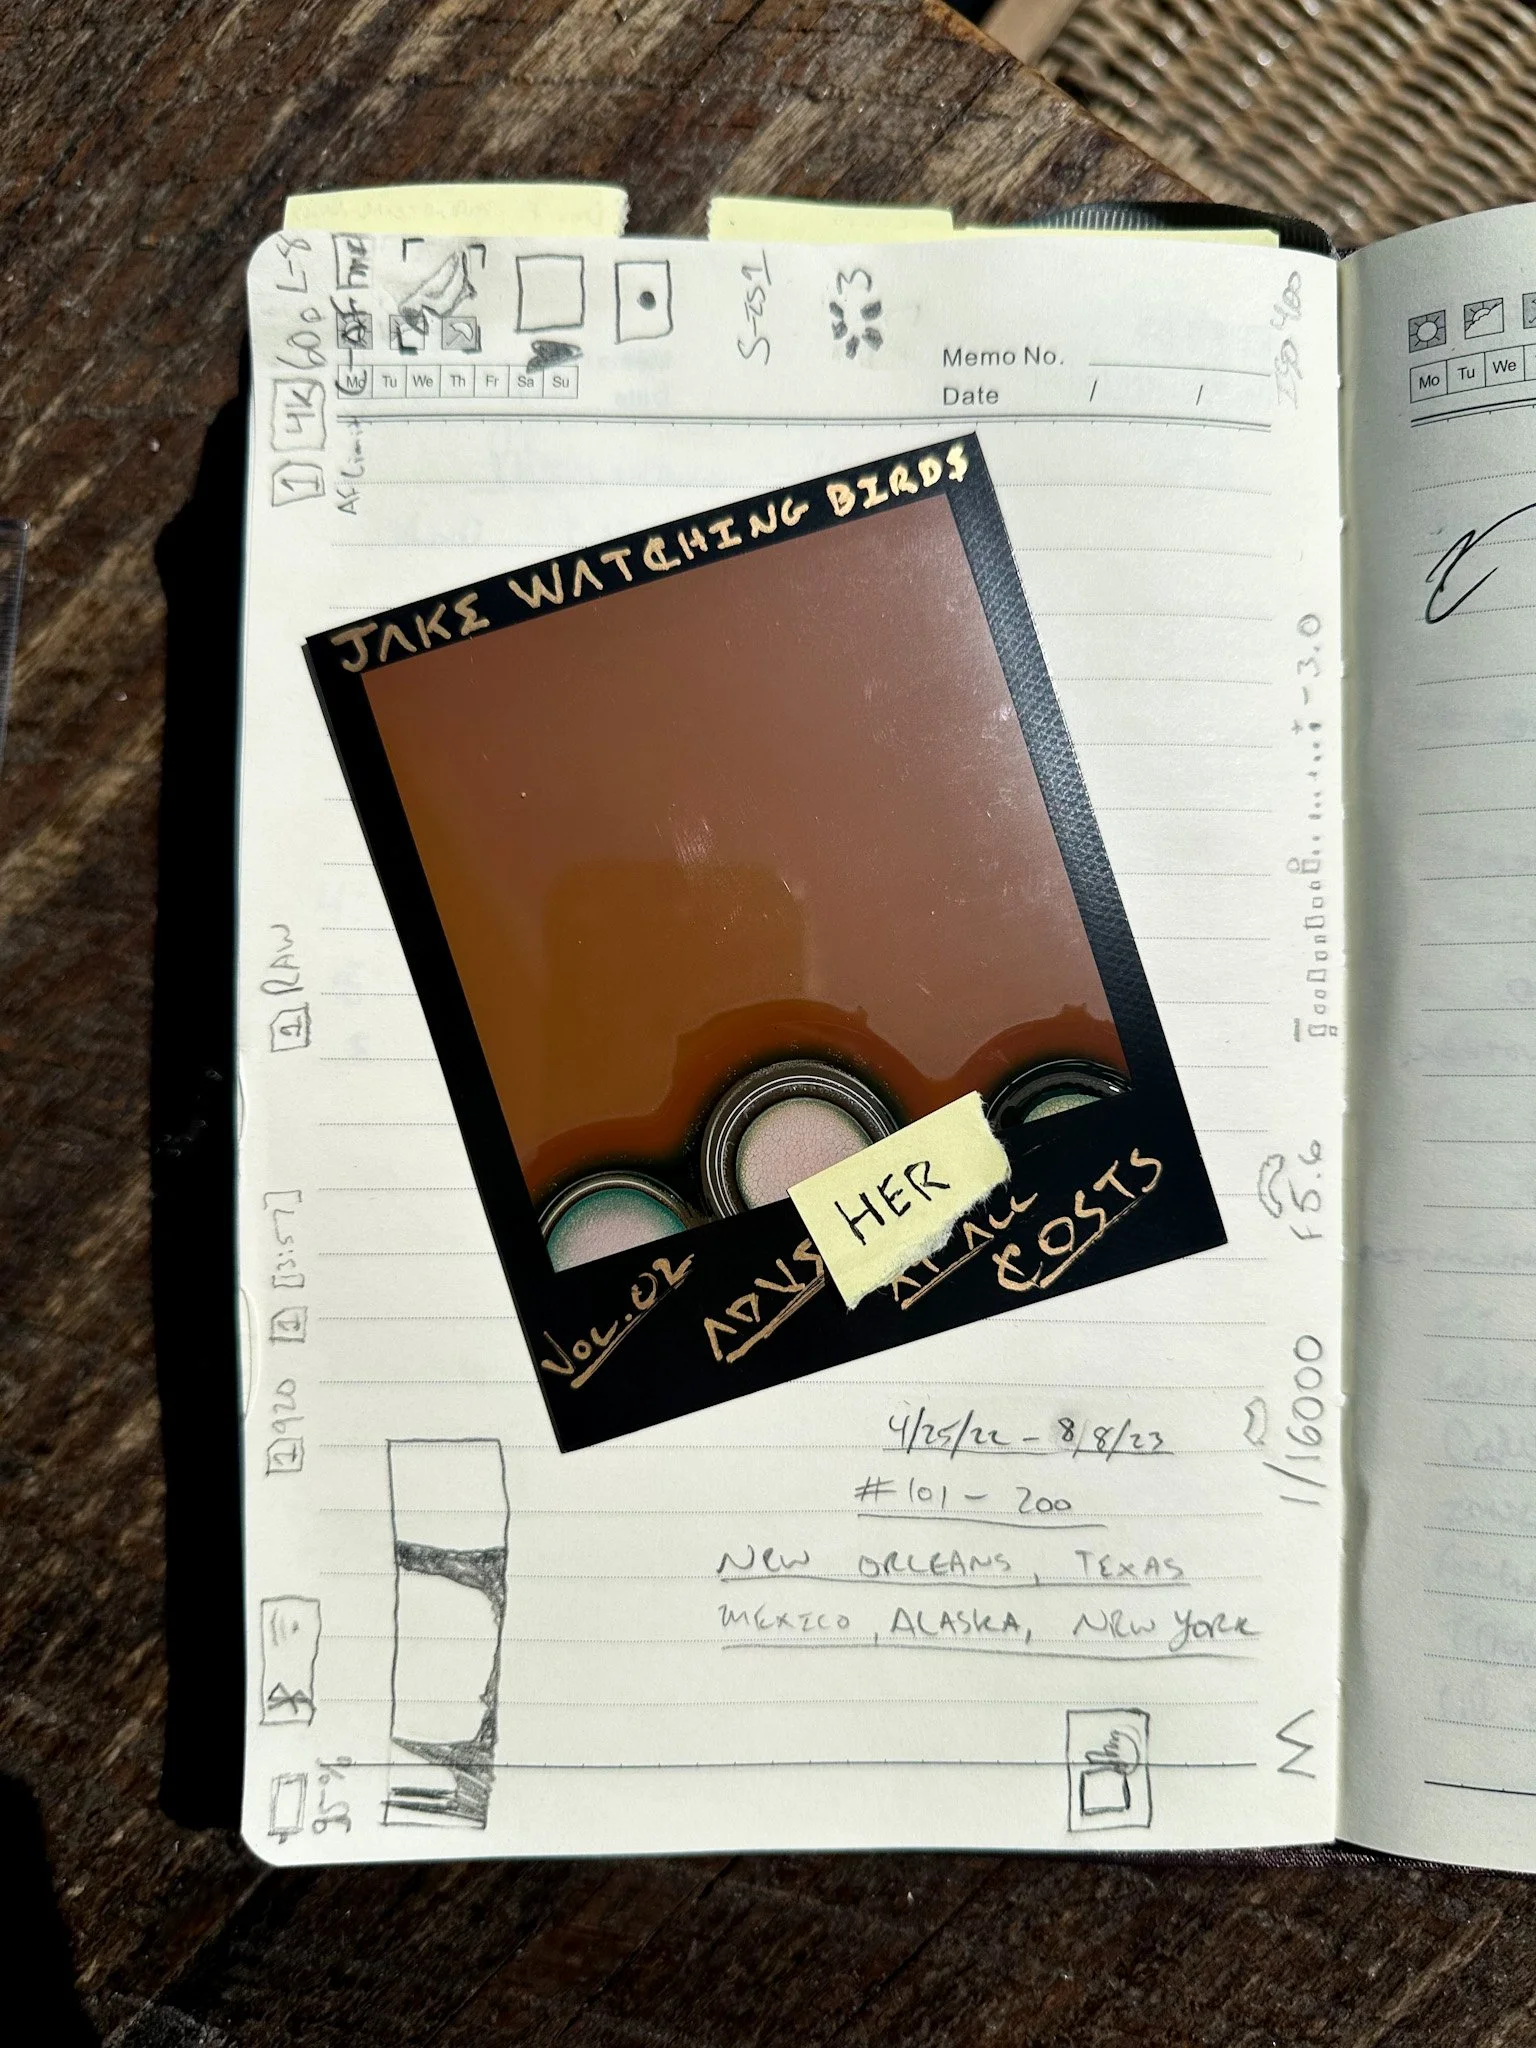 S-IS1
3
ISO 400
Memo No.
Date / /
Mo Tu We Th Fr Sa Su
1 4K 60p L-8
C-AF
AF Limit
Mo Tu We
JAKE WATCHING BIRDS
-3.0
1 RAW
HER
VOL. 02 ADVS AT ALL COSTS
F5.6
1 [3:57]
1 920
1/16000
4/25/22 - 8/8/23
#101 - 200
NEW ORLEANS, TEXAS
MEXICO, ALASKA, NEW YORK
M
95%